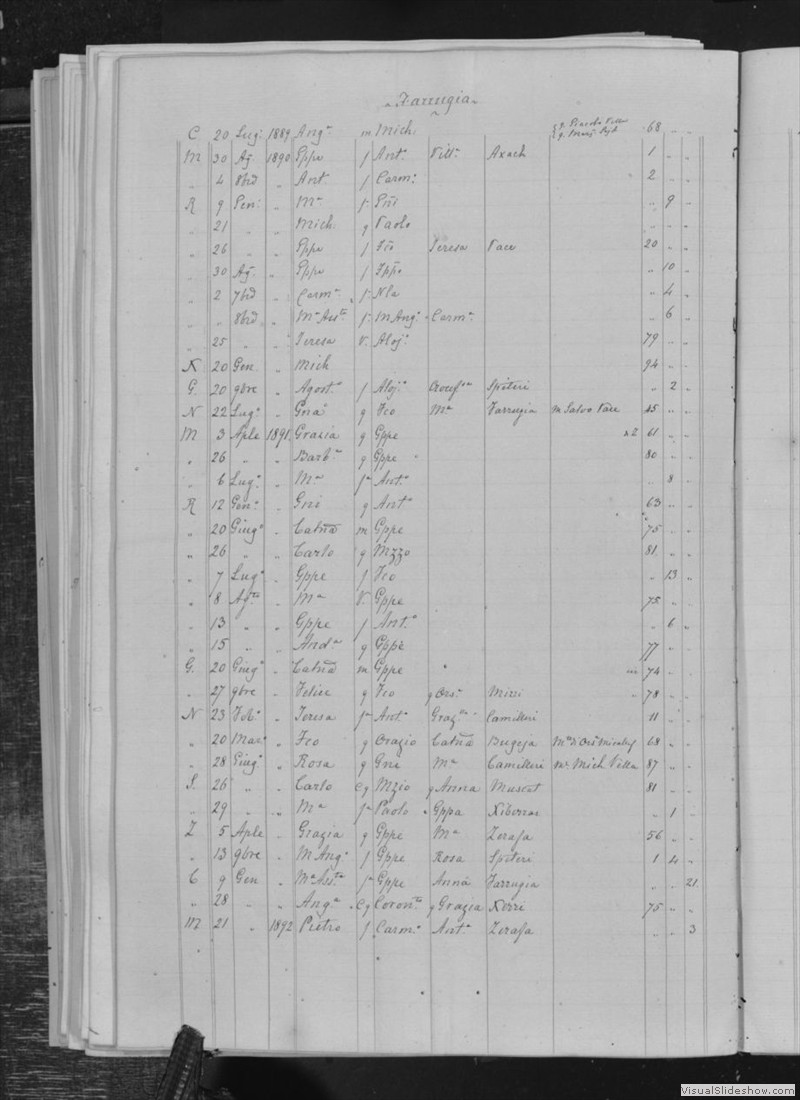 Farrugia
C 20 Lug. 1889 Angª m Mich. 68 " "
M 30 Ag. 1890 Gppe f Antº Vittª Axach 1 " "
" 4 8bre " Ant. f Carmº 2 " "
R 9 Gen. " Mª f Gni " 9 "
" 21 " Mich. g Paolo
" 26 " Gppe f Fco Teresa Pace 20 " "
" 30 Ag. " Gppe f Gppe " 10 "
" 2 7bre " Carmª f Nla " 4 "
" " 8bre " Mª Assta f M Angº Carmª " 6 "
" 25 " " Teresa V. Alojº 79 " "
K 20 Gen. " Mich 94 " "
G. 20 9bre " Agostº f Alojº Spiteri " 2 "
N 22 Lugº " g Fco Mª Farrugia m Salvo Pace 45 " "
M 3 Aple 1891. Grazia g Gppe x2 61 " "
" 26 " " Barbª g Gppe 80 " "
" 6 Lugº " Mª fª Antº " 8 "
R 12 Genº " Gni g Antº 63 " "
" 20 Giugº " Catnã m Gppe 75 " "
" 26 " " Carlo g Mzzo 81 " "
" 7 Lugº " Gppe f Fco " 13 "
" 8 Agto " Mª V. Gppe 75 " "
" 13 " " Gppe f Antº " 6 "
" 15 " " Andª g Gppe 77 " "
G. 20 Giugº " Catnã m Gppe 74 " "
" 27 9bre " Felice g Fco g Orsª Mizzi 78 " "
N 23 Febº " Teresa fª Antº Grazia Camilleri 11 " "
" 20 Marº " Fco g Orazio Catnã Bugeja 68 " "
" 28 Giugº " Rosa g Gni Mª Camilleri m. Mich Vella 87 " "
S. 26 " " Carlo Cg Mzio g Anna Muscat 81 " "
" 29 " " Mª fª Paolo Gppa Xiberras " 1 "
Z 5 Aple " Grazia g Gppe Mª Zerafa 56 " "
" 13 9bre " M Angº f Gppe Rosa Spiteri 1 4 "
C 9 Gen " Mª Assta fª Gppe Anna Farrugia " " 21
" 28 " Angª Cg Coronto g Grazia Xerri 75 " "
M 21 " 1892 Pietro f Carmº Antª Zerafa " " 3
VisualSlideshow.com